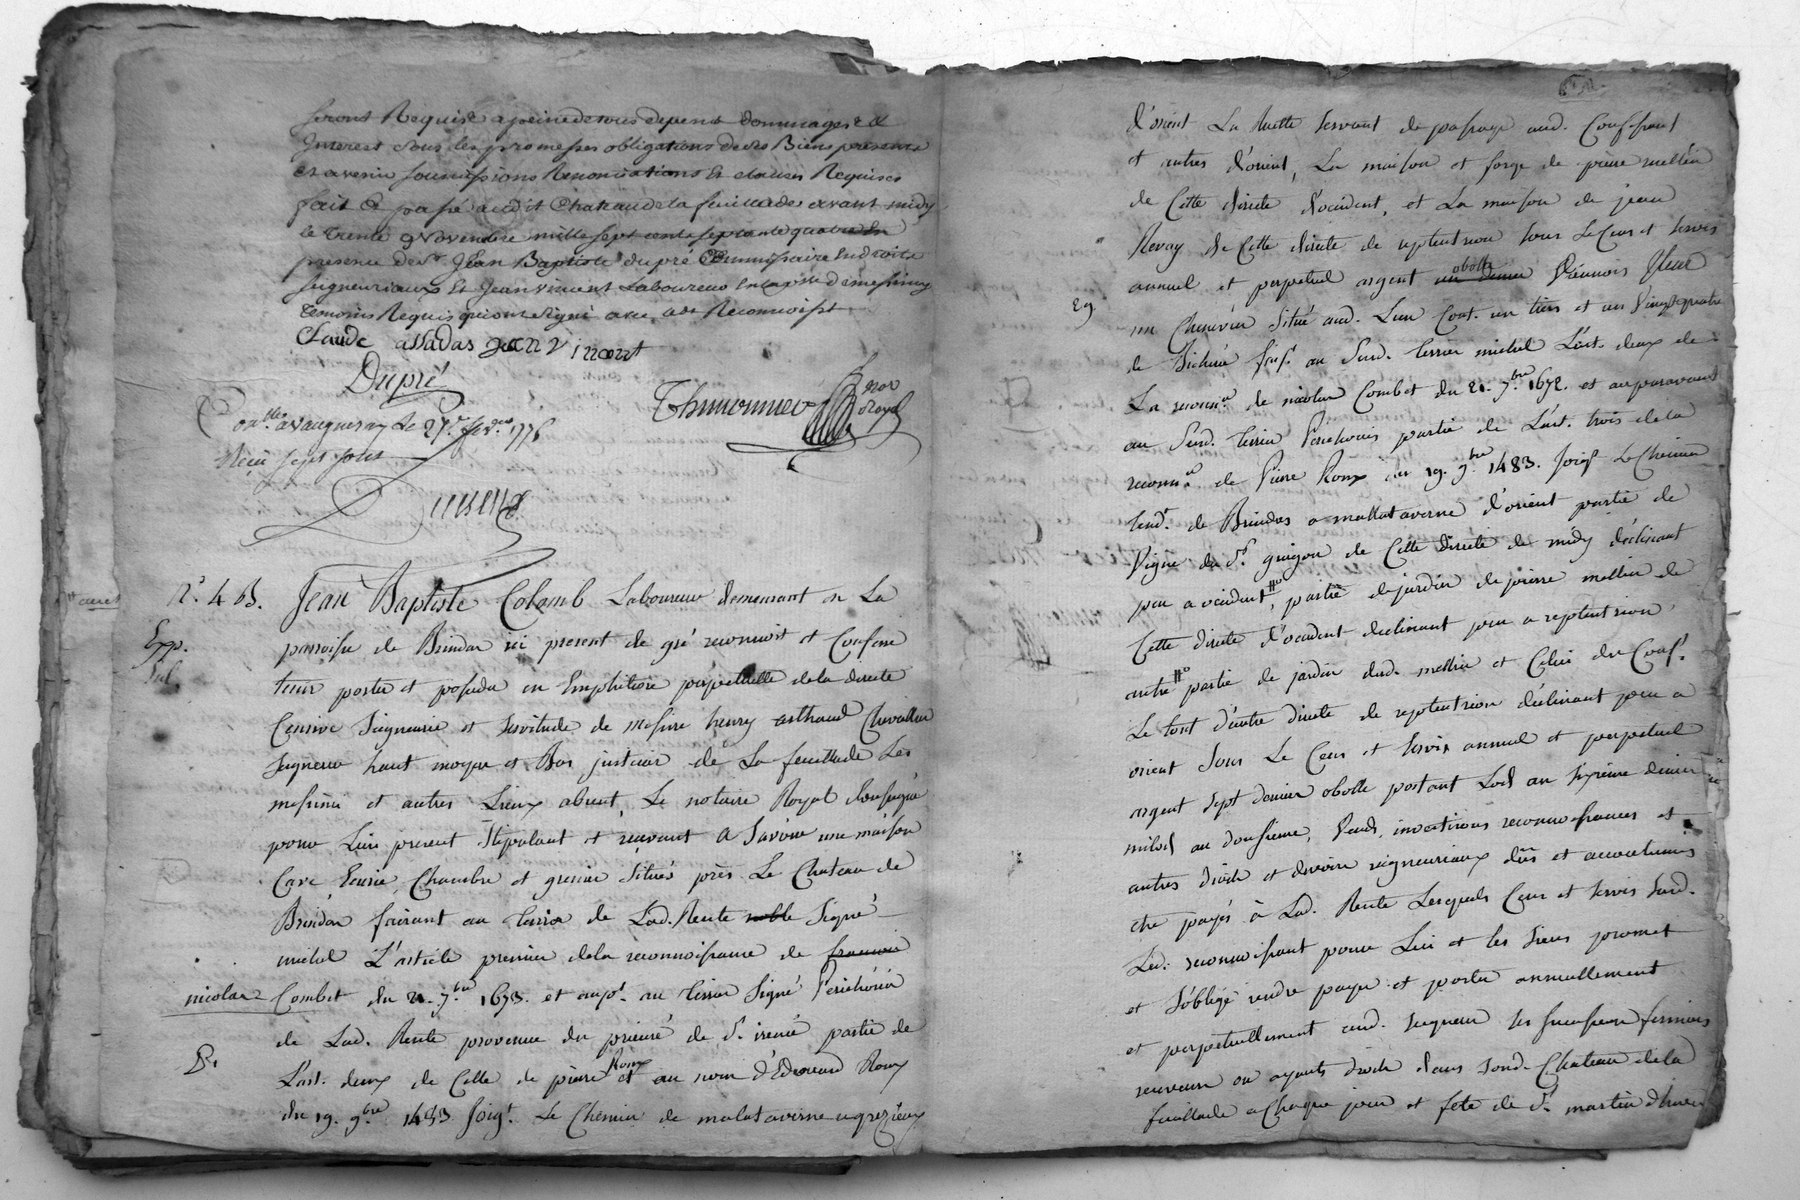 seront Requise a peine de tous depens dommages &
Interest sous les promesses obligations de ses Biens presents
et avenir soumissions Renonciations Et clauses Requises
fait & passé audit Chateau de la feuillade avant midy
le trente Novembre mille sept cents septante quatre En
presence de Sr. Jean Baptiste dupré Commissaire En droits
seigneuriaux Et Jean vincent Laboureur En la psse de messimy
temoins Requis qui ont signé avec led. Reconnoisst.
Claude assadas jean vincent
Dupré
Thimonnier nor Royal
Con.lle a Vaugneray Le 27e. fev.er 1775
Reçu sept sous
N°. 463. Jean Baptiste Colomb Laboureur demeurant en La
Exp. paroisse de Brindas ici present de gré reconnoit et Confesse
tenir porter et posseder en Emphiteose perpetuelle de la directe
Censive Seigneurie et servitude de messire henry arthaud Chevallier
seigneur haut moyen et Bas justicier de La feuillade Les
messimi et autres Lieux absent, Le notaire Royal soussigné
pour Lui present stipulant et recevant A Savoir une maison
Cave Ecurie, Chambre et grenier situés près Le Chateau de
Brindas faisant au terrier de Lad. Rente noble Signé
michel L'article premier de la reconnoissance de francois
nicolas Combet du 21. 7.bre 1673. et aupt. au terrier Signé Perichonin
de Lad. Rente provenue du prieuré de St. irenée partie de
B. L'art. deux de Celle de pierre Roux et au nom d'Edouard Roux
du 19. 9.bre 1483 joigt. Le Chemin de malataverne a grezieux
d'orient La Ruette servant de passage aud. Confessant
et autres d'orient, La maison et forge de pierre mellin
de Cette directe d'occident, et La maison de jean
Revay de Cette directe de septentrion sous Le Cens et servis
annuel et perpetuel argent un denier obolle Viennois Plus
29 un Chenevier Situé aud. Lieu Cont. un tiers et un Vingtquatre
de Bicherée fais.t au Susd. terrier michel L'art. deux de
La reconn.ce de nicolas Combet du 21. 7.bre 1672. et auparavant
au Susd. terrier Perichonin partie de L'art. trois de la
reconn.ce de Pierre Roux du 19. 9.bre 1483. joigt Le Chemin
tend.t de Brindas a mallataverne d'orient partie de
Vigne du Sr. guigou de Cette directe de midy déclinant
peu a occident, partie de jardin de pierre mellin de
Cette directe d'occident declinant peu a septentrion
autre partie de jardin dud. mellin et Celui du Conf.t
Le tout d'autre directe de septentrion declinant peu a
orient Sous Le Cens et servis annuel et perpetuel
argent sept denier obolle portant Lods au sixieme denier
milods au douzieme, Vends, investisons reconnoissances et
autres droits et devoirs seigneuriaux dûs et accoutumés
etre payés à Lad. Rente Lesquels Cens et servis Susd.
Led. reconnoissant pour Lui et les Siens promet
et s'oblige rendre payer et porter annuellement
et perpetuellement aud. seigneur ses successeurs fermiers
receveurs ou ayants droits dans sond. Chateau de la
feuillade a Chaque jour et fete de St. martin d'hiver